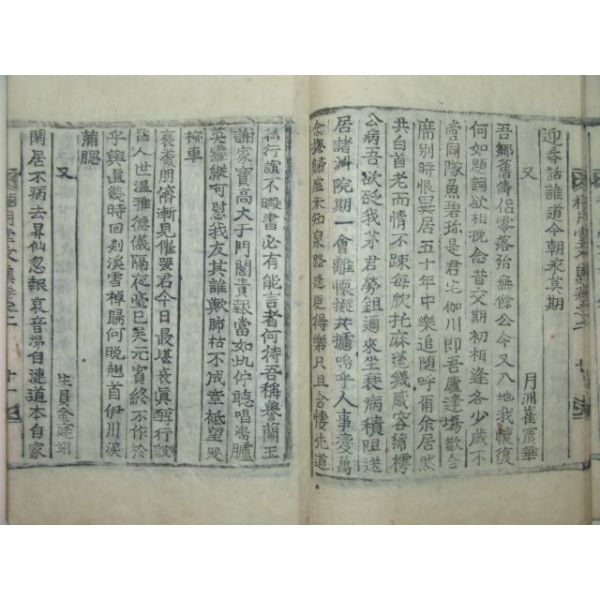 迎秊話誰道今朝永莫期
又 月洲崔震華
吾鄉舊儔侶零落殆無餘公今又入地我懷復
何如題詞欲相挽念昔交期初相逢各少歲不
啻同隊魚碧珍是君宅伽川即吾廬逢場歡合
席別時恨異居五十年中樂追隨呼爾余居然
共白首老而情不踈每歎托麻蓬幾感容歸樗
公病吾欲起我茅君勞鋤邇來坐衰病積阻送
居諸洲院期一會離懷擬共攄嗚乎人事變萬
念歸廬未知泉路還更得樂只且含悽先道
行誼不暇書必有能言者何待吾稱譽蘭玉
謝家寶高大于門閭責報當如此佇聽唱喦臚
英靈縱可慰我友其誰歟肺枯不成章祗望哭
柳車
哀壺朋儕漸見催哭君今日最堪哀眞醇行誼
人世溫雅德儀隔夜臺已矣元賓終不作於
乎興道幾時回剡溪雪棹歸何晚翹首伊川淚
滿腮
又 生員金
閑居不病去昇仙忽報哀音常自漣道本自家